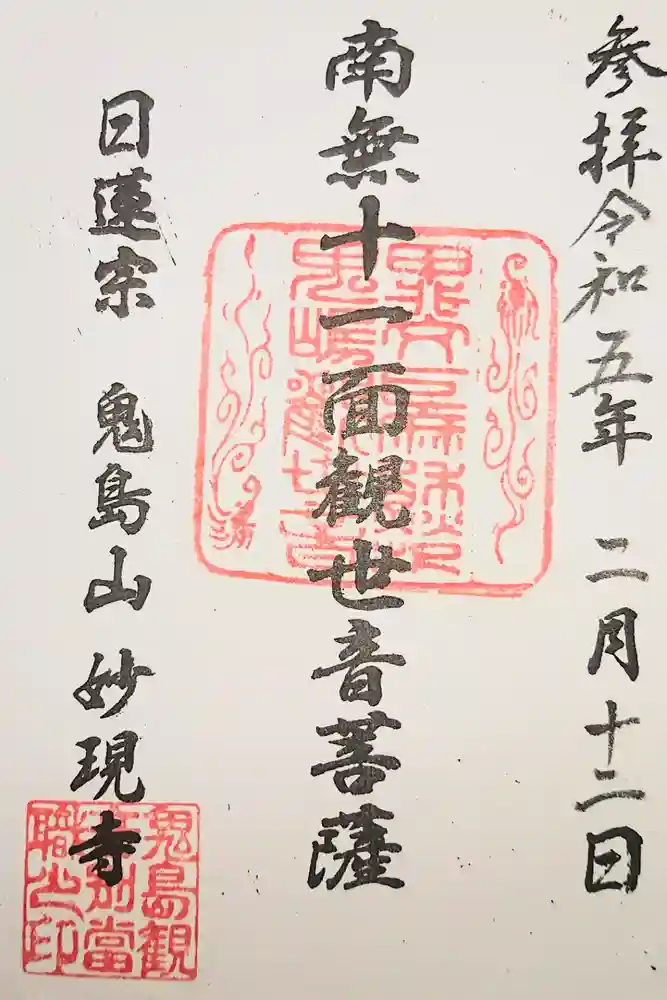 参拝令和五年 二月十二日
南無十一面観世音菩薩
日蓮宗 鬼島山 妙現寺
鬼島観
別當
職之印